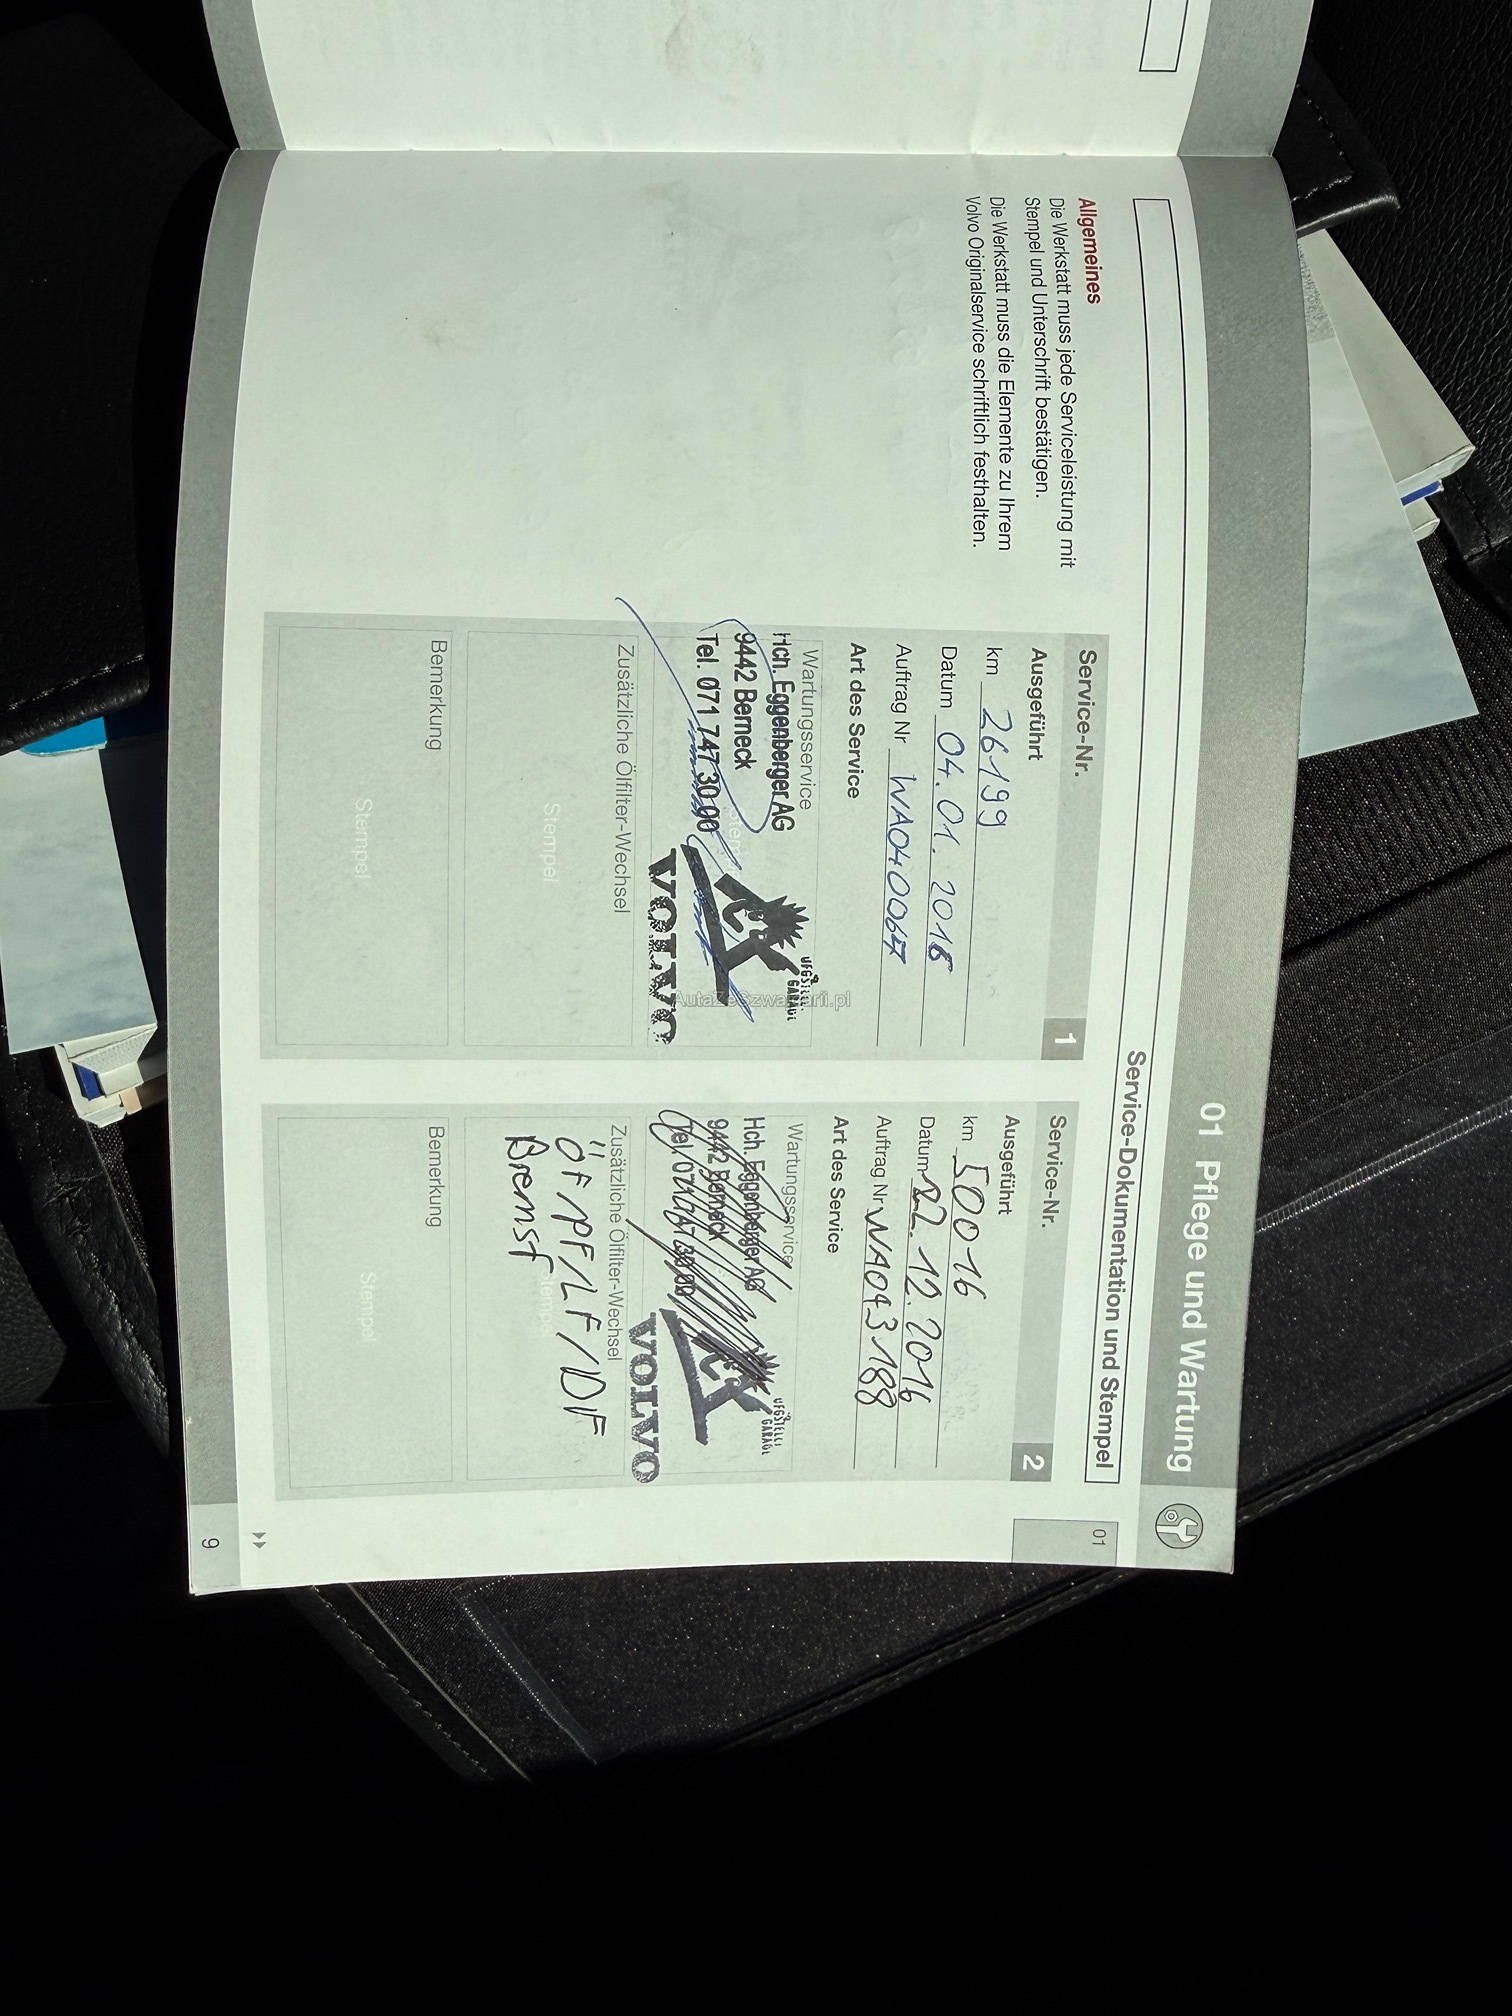 01 Pflege und Wartung
Service-Dokumentation und Stempel
01
Allgemeines
Die Werkstatt muss jede Serviceleistung mit
Stempel und Unterschrift bestätigen.
Die Werkstatt muss die Elemente zu Ihrem
Volvo Originalservice schriftlich festhalten.
Service-Nr. 1
Ausgeführt
km 26199
Datum 04.01.2016
Auftrag Nr WA040067
Art des Service
Wartungsservice
Hch. Eggenberger AG
9442 Berneck
Tel. 071 747 30 00
GARAGE
VOLVO
Zusätzliche Ölfilter-Wechsel
Stempel
Bemerkung
Stempel
Service-Nr. 2
Ausgeführt
km 50016
Datum 22.12.2016
Auftrag Nr WA043188
Art des Service
Wartungsservice
Hch. Eggenberger AG
9442 Berneck
Tel. 071 747 30 00
GARAGE
VOLVO
Zusätzliche Ölfilter-Wechsel
Stempel
ÖF/PF/LF/DF
Bremsf
Bemerkung
Stempel
9
AutaZeSzwajcarii.pl